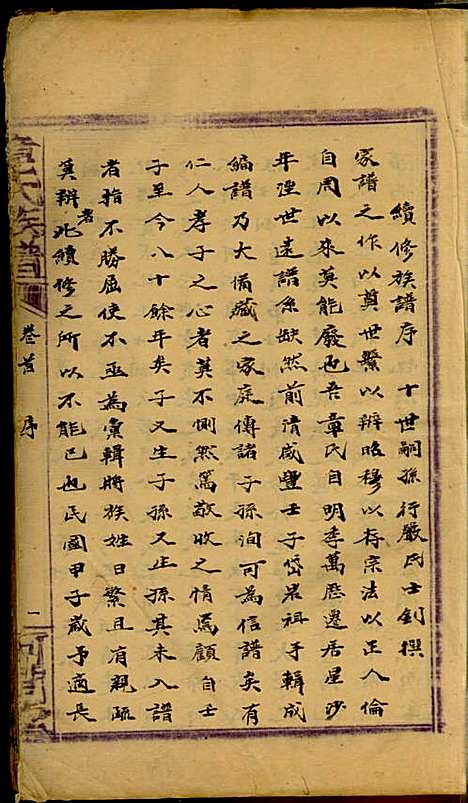 續修族譜序　十世嗣孫行嚴氏士釗撰
家譜之作以奠世繫以辨昭穆以存宗法以正人倫
自周以來莫能廢也吾章氏自明季萬厯遷居星沙
年湮世遠譜系缺然前清咸豐壬子岱杲祖手輯成
編譜乃大備藏之家庭傳諸子孫洵可為信譜矣有
仁人孝子之心者莫不惻然篤敬收之情焉顧自壬
子至今八十餘年矣子又生子孫又生孫其未入譜
者指不勝屈使不亟為彙輯將族姓日繁且有親疏
莫辨者此續修之所以不能已也民國甲子歲予適長
章氏族譜
卷首　序
一
河間堂